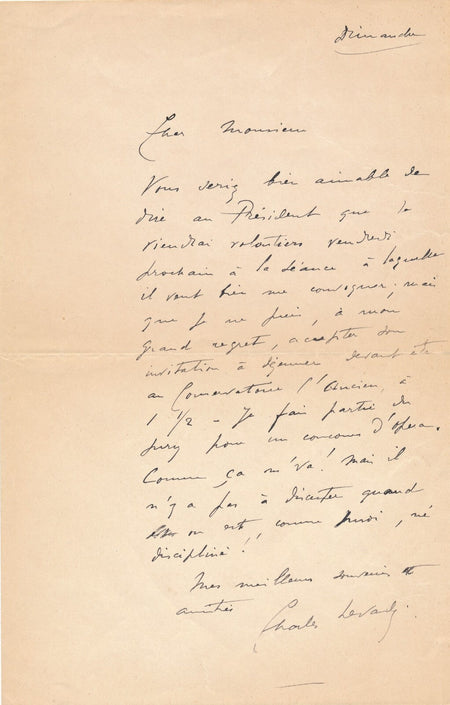 Dimanche
Cher Monsieur
Vous seriez bien aimable de
dire au Président que je
viendrai volontiers vendredi
prochain à la séance à laquelle
il veut bien me convoquer ; mais
que je ne puis, à mon
grand regret, accepter son
invitation à déjeuner devant être
au Conservatoire l'Ancien, à
1 1/2 - Je fais partie du
Jury pour un concours d'opéra.
Comme ça m'va ! Mais il
n'y a pas à discuter quand
on est, comme moi, né
discipliné !!
Mes meilleurs souvenirs et
amitiés
Charles Levadé.